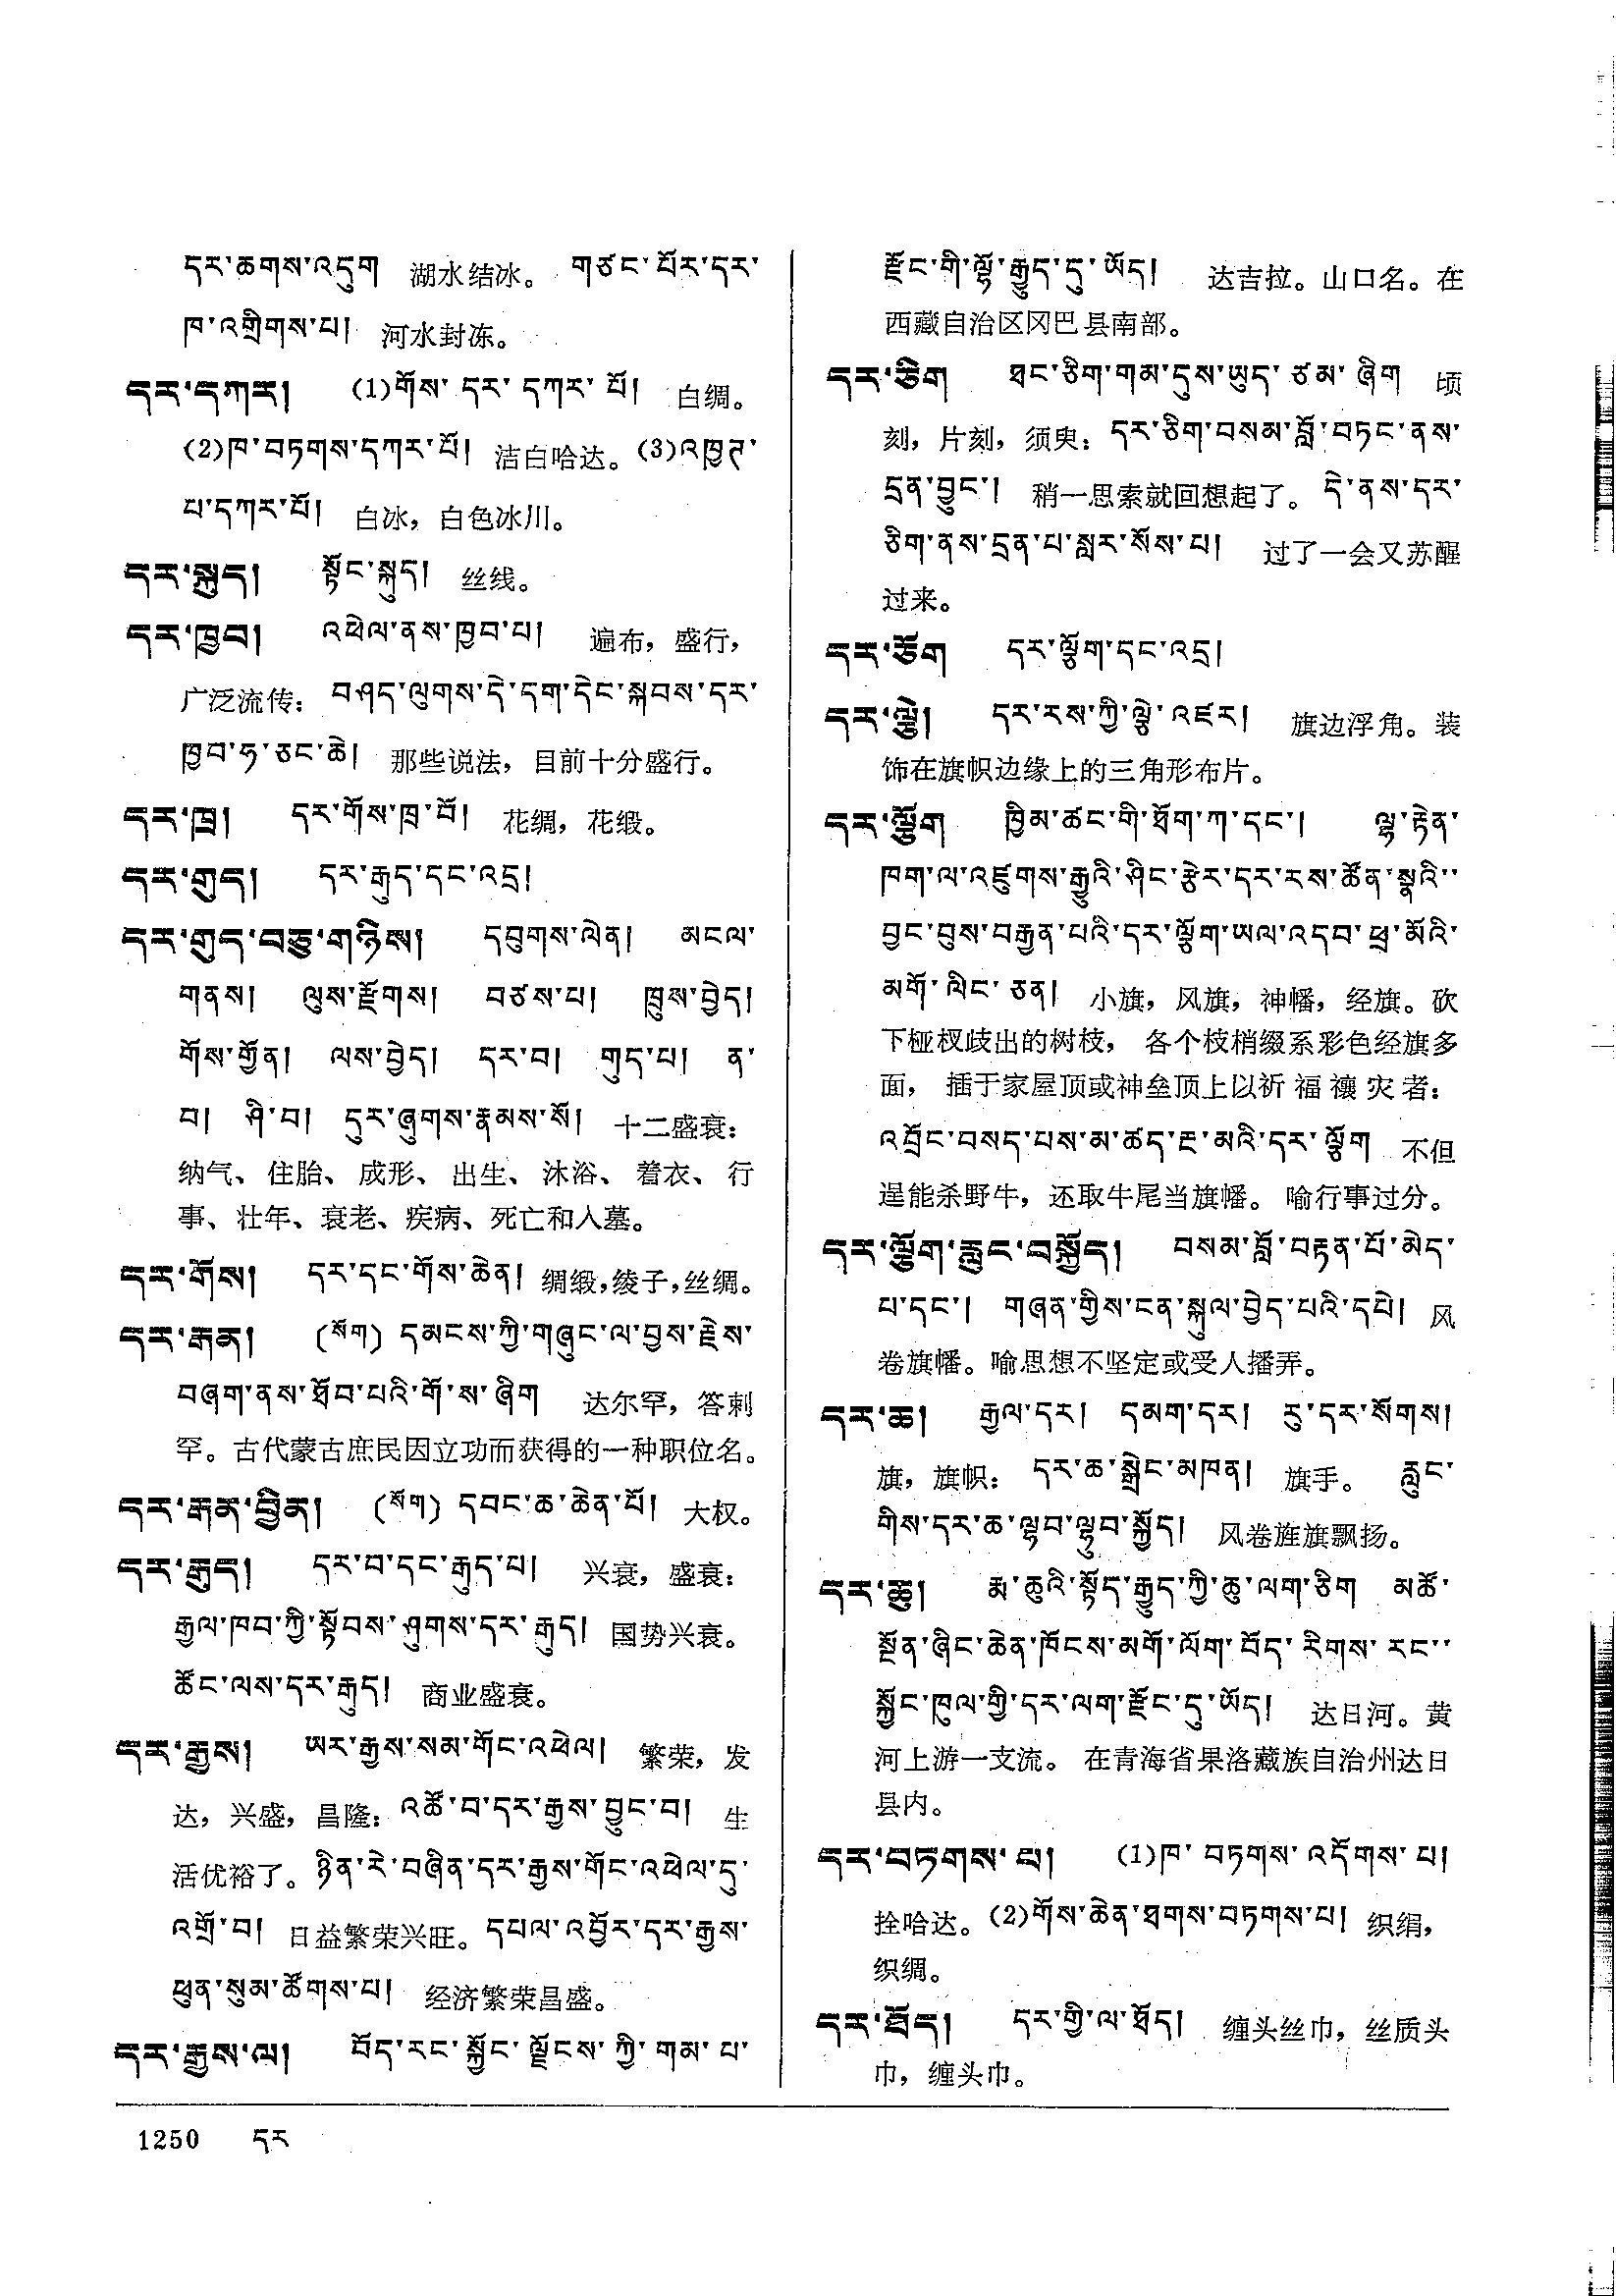 དར་ཆགས་འདུག 湖水结冰。 གཙང་པོར་དར་
ཁ་འགྲིགས་པ། 河水封冻。
དར་དཀར། (1)གོས་དར་དཀར་པོ། 白绸。
(2)ཁ་བཏགས་དཀར་པོ། 洁白哈达。(3)འཁྱཊ་
པ་དཀར་པོ། 白冰，白色冰川。
དར་སྐུད། སྟོང་སྐུད། 丝线。
དར་ཁྱབ། འཕེལ་ནས་ཁྱབ་པ། 遍布，盛行，
广泛流传：བཤད་ལུགས་དེ་དག་དེང་སྐབས་དར་
ཁྱབ་ཧ་ཅང་ཆེ། 那些说法，目前十分盛行。
དར་ཁྲ། དར་གོས་ཁྲ་བོ། 花绸，花缎。
དར་གུད། དར་རྒུད་དང་འདྲ།
དར་གུད་བཅུ་གཉིས། དབུགས་ལེན། མངལ་
གནས། ལུས་རྫོགས། བཙས་པ། ཁྲུས་བྱེད།
གོས་གྱོན། ལས་བྱེད། དར་བ། གུད་པ། ན་
བ། ཤི་བ། དུར་ཞུགས་རྣམས་སོ། 十二盛衰：
纳气、住胎、成形、出生、沐浴、着衣、行
事、壮年、衰老、疾病、死亡和入墓。
དར་གོས། དར་དང་གོས་ཆེན། 绸缎，绫子，丝绸。
དར་རྒན། (སོག) དམངས་ཀྱི་གཞུང་ལ་བྱས་རྗེས་
བཞག་ནས་ཐོབ་པའི་གོ་ས་ཞིག 达尔罕，答剌
罕。古代蒙古庶民因立功而获得的一种职位名。
དར་རྒན་བྱིན། (སོག) དབང་ཆ་ཆེན་པོ། 大权。
དར་རྒུད། དར་བ་དང་རྒུད་པ། 兴衰，盛衰：
རྒྱལ་ཁབ་ཀྱི་སྟོབས་ཤུགས་དར་རྒུད། 国势兴衰。
ཚོང་ལས་དར་རྒུད། 商业盛衰。
དར་རྒྱས། ཡར་རྒྱས་སམ་གོང་འཕེལ། 繁荣，发
达，兴盛，昌隆：འཚོ་བ་དར་རྒྱས་བྱུང་བ། 生
活优裕了。ཉིན་རེ་བཞིན་དར་རྒྱས་གོང་འཕེལ་དུ་
འགྲོ་བ། 日益繁荣兴旺。དཔལ་འབྱོར་དར་རྒྱས་
ཕུན་སུམ་ཚོགས་པ། 经济繁荣昌盛。
དར་རྒྱས་ལ། བོད་རང་སྐྱོང་ལྗོངས་ཀྱི་གམ་པ་
རྫོང་གི་ལྷོ་རྒྱུད་དུ་ཡོད། 达吉拉。山口名。在
西藏自治区冈巴县南部。
དར་ཅིག ཐང་ཅིག་གམ་དུས་ཡུད་ཙམ་ཞིག 顷
刻，片刻，须臾：དར་ཅིག་བསམ་བློ་བཏང་ནས་
དྲན་བྱུང་། 稍一思索就回想起了。དེ་ནས་དར་
ཅིག་ནས་དྲན་པ་སླར་སོས་པ། 过了一会又苏醒
过来。
དར་ཅོག དར་ལྕོག་དང་འདྲ།
དར་ལྕེ། དར་རས་ཀྱི་ལྕེ་འཛར། 旗边浮角。装
饰在旗帜边缘上的三角形布片。
དར་ལྕོག ཁྱིམ་ཚང་གི་ཐོག་ཀ་དང་། ལྷ་རྟེན་
ཁག་ལ་འཛུགས་རྒྱུའི་ཤིང་རྩེར་དར་རས་ཚོན་སྣའི་་
བྱང་བུས་བརྒྱན་པའི་དར་ལྕོག་ཡལ་འདབ་ཕྲ་མོའི་
མགོ་ལིང་ཅན། 小旗，风旗，神幡，经旗。砍
下桠杈歧出的树枝，各个枝梢缀系彩色经旗多
面，插于家屋顶或神垒顶上以祈福禳灾者：
འབྲོང་བསད་པས་མ་ཚད་རྔ་མའི་དར་ལྕོག 不但
逞能杀野牛，还取牛尾当旗幡。喻行事过分。
དར་ལྕོག་རླུང་བསྐྱོད། བསམ་བློ་བརྟན་པོ་མེད་
པ་དང་། གཞན་གྱིས་ངན་སྐུལ་བྱེད་པའི་དཔེ། 风
卷旗幡。喻思想不坚定或受人播弄。
དར་ཆ། རྒྱལ་དར། དམག་དར། རུ་དར་སོགས།
旗，旗帜：དར་ཆ་སྒྲེང་མཁན། 旗手。 རླུང་
གིས་དར་ཆ་ལྷབ་ལྷུབ་སྐྱོད། 风卷旌旗飘扬。
དར་ཆུ། རྨ་ཆུའི་སྟོད་རྒྱུད་ཀྱི་ཆུ་ལག་ཅིག མཚོ་
སྔོན་ཞིང་ཆེན་ཁོངས་མགོ་ལོག་བོད་རིགས་རང་་
སྐྱོང་ཁུལ་གྱི་དར་ལག་རྫོང་དུ་ཡོད། 达日河。黄
河上游一支流。在青海省果洛藏族自治州达日
县内。
དར་བཏགས་པ། (1)ཁ་བཏགས་འདོགས་པ།
拴哈达。(2)གོས་ཆེན་ཐགས་བཏགས་པ། 织绢，
织绸。
དར་ཐོད། དར་གྱི་ལ་ཐོད། 缠头丝巾，丝质头
巾，缠头巾。
1250 དར